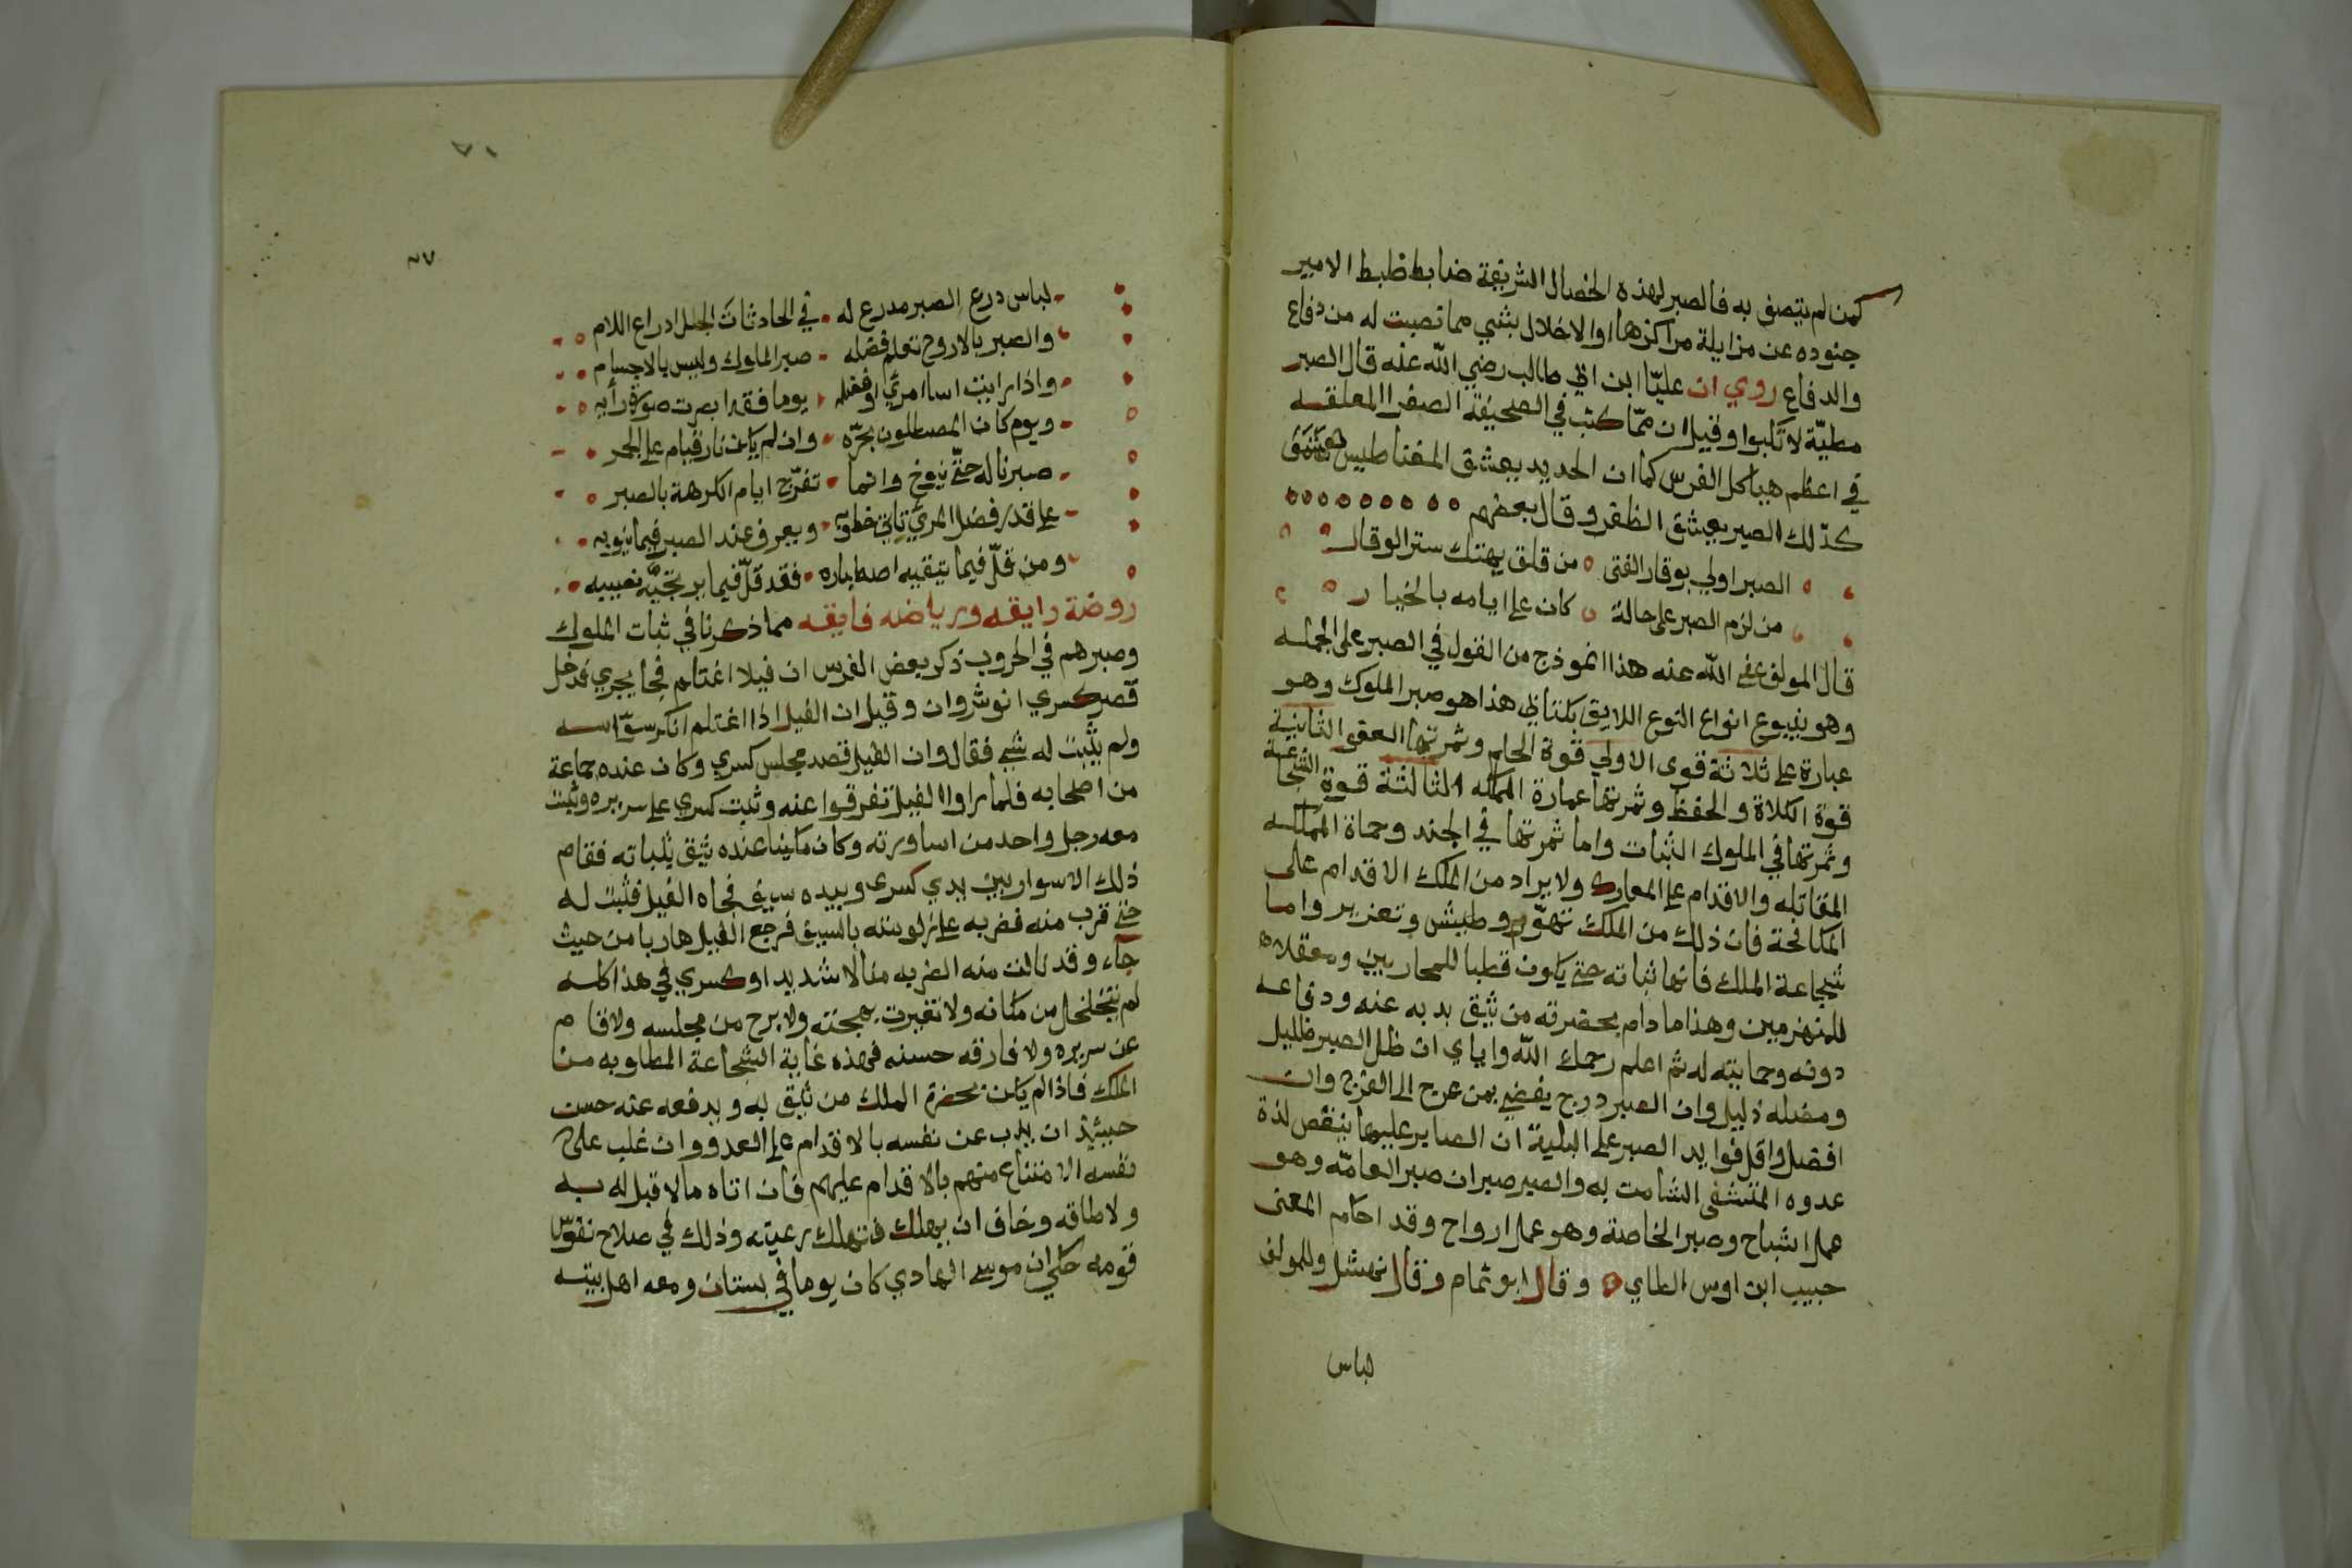 كمن لم يتصف به فالصبر لهذه الخصال الشريفة ضابط ضبط الامير
جنوده عن مزايلة مراكزها والاخلال بشي مما نصبت له من دفاع
والدفاع روي ان عليّا ابن ابي طالب رضي الله عنه قال الصبر
مطيّة لا تكبوا وقيل ان ممّا كتب في الصحيفة الصفرا المعلقه
في اعظم هياكل الفرس كما ان الحديد يعشق المغناطيس
كذلك الصبر يعشق الظفر وقال بعضهم
الصبر اولي بوقار الفتى من قلق يهتك ستر الوقار
من لزم الصبر على حالة كان على ايامه بالخيار
قال المولف عفى الله عنه هذا انموذج من القول في الصبر على الجمله
وهو ينبوع انواع النوع اللايق بكتابي هذا هو صبر الملوك وهو
عبارة على ثلاثة قوى الاولي قوة الحلم وثمرتها العفو الثانية
قوة الكلاة والحفظ وثمرتها عمارة المملكه الثالثة قوة الشجاعة
وثمرتها في الملوك الثبات واما ثمرتها في الجند وحماة المملكه
المقاتله والاقدام على المعارك ولا يراد من الملك الاقدام على
المكافحة فان ذلك من الملك تهوّر وطيش وتعزير واما
شجاعة الملك فانها ثباته حتى يكون قطبا للمحاربين ومعقلا
للمنهزمين وهذا ما دام بحضرته من يثق بذبه عنه ودفاعه
دونه وحمايته له ثم اعلم رحمك الله واياي ان ظل الصبر ظليل
ومضله ذليل وان الصبر درج يفضي بمن عرج الى الفرج وان
افضل واقل فوايد الصبر على البلية ان الصابر عليها ينقص لذة
عدوه المتشفى الشامت به والصبر صبران صبر العامّه وهو
عمل اشباح وصبر الخاصة وهو عمل ارواح وقد احكم المعنى
حبيب ابن اوس الطاي وقال ابو تمام وقال نهشل وللمولف
لباس
٧٦
لباس درع الصبر مدرع له في الحادثات الجلل ادراع اللام
والصبر بالاروح تعلم فضله صبر الملوك وليس بالاجسام
واذا رايت اسا امرئ او فضله يوما فقد ابصرت صورة رأيه
ويوم كان المصطلون بحرّه وان لم يكن نار قيام على الجمر
صبرنا له حتّى يبوخ وانما تفرّج ايام الكرهة بالصبر
على قدر فضل المرئ تاتي خطوبه ويعرف عند الصبر فيما ينوبه
ومن قلّ فيما يتقيه اصطباره فقد قلّ فيما يرتجيه نصيبه
روضة رايقه ورياضه فايقه مما ذكرنا في ثبات الملوك
وصبرهم في الحروب ذكر بعض الفرس ان فيلا اغتلم فجا يجري فدخل
قصر كسري انوشروان وقيل ان الفيل اذا اغتلم انكر سوّاسه
ولم يثبت له شي فقالوا ان الفيل قصد مجلس كسري وكان عنده جماعة
من اصحابه فلما راوا الفيل تفرقوا عنه وثبت كسري على سريره وثبت
معه رجل واحد من اساورته وكان مكينا عنده يثق بثباته فقام
ذلك الاسوار بين يدي كسرى وبيده سيف فجاه الفيل فثبت له
حتى قرب منه فضربه على زلومته بالسيف فرجع الفيل هاربا من حيث
جاء وقد نالت منه الضربه منالا شديدا وكسري في هذا كله
لم يتخلخل من مكانه ولا تغيرت بهجته ولا برح من مجلسه ولا قام
عن سريره ولا فارقه حسنه فهذه غاية الشجاعة المطلوبه من
الملك فاذا لم يكن بحضرة الملك من يثق به ويدفعه عنه حسن
حينيذ ان يذب عن نفسه بالاقدام على العدو وان غلب على
نفسه الامتناع منهم بالاقدام عليهم فان اتاه مالا قبل له به
ولا طاقه وخاف ان يهلك فتهلك رعيته وذلك في صلاح نفوس
قومه حكي ان موسى الهادي كان يوما في بستان ومعه اهل بيته